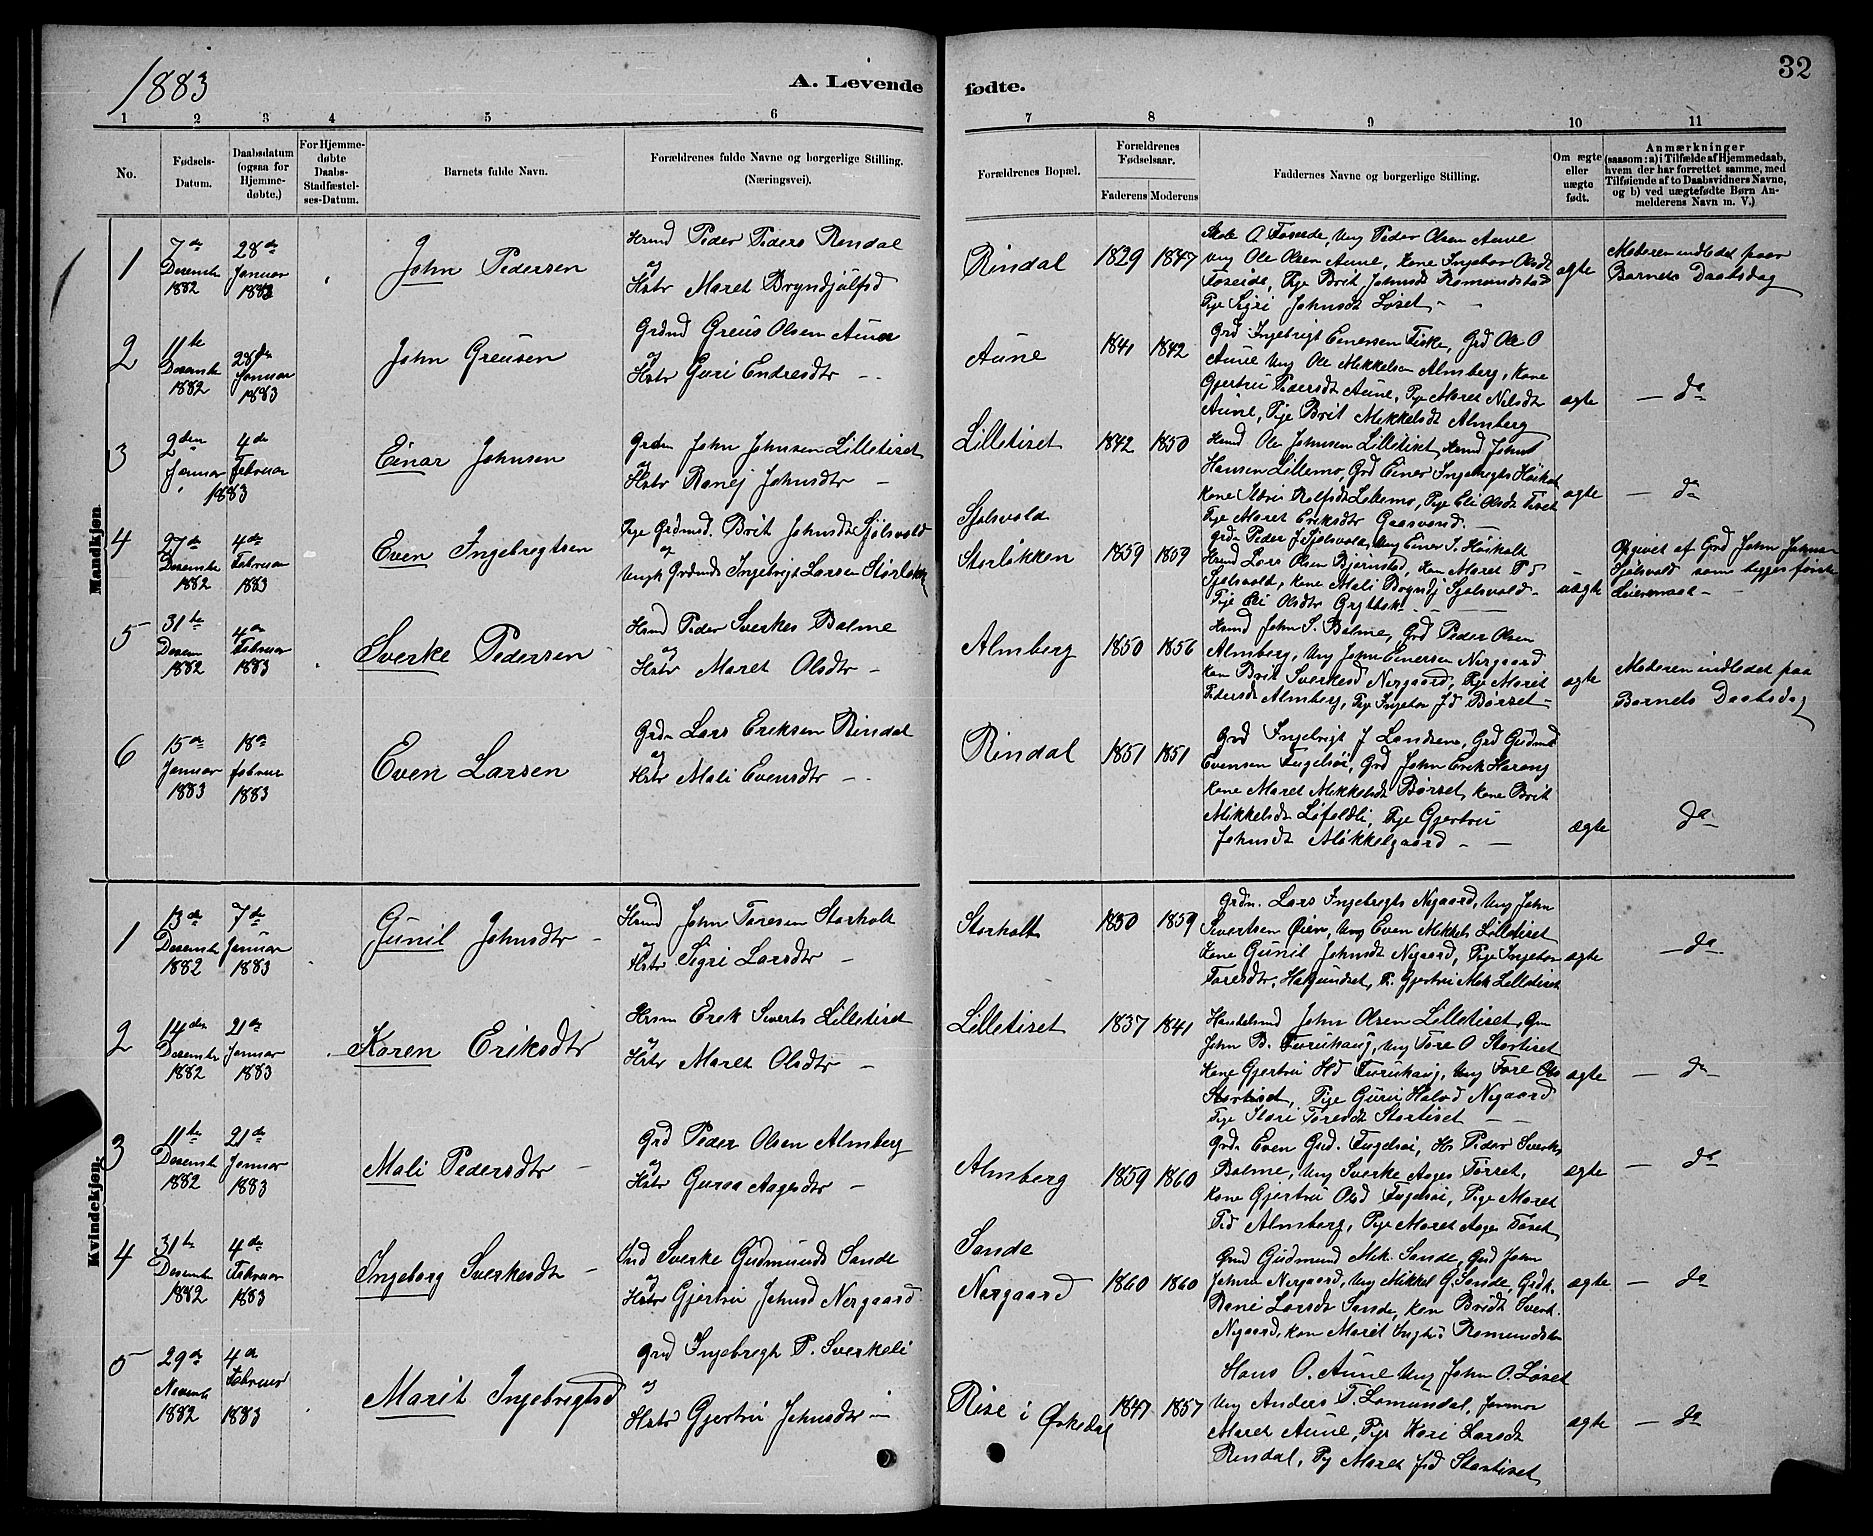 1883
A. Levende
fødte.
32
1 2 3 4 5 6
7 8 9 10 11
No.
Fødsels-Datum.
Daabsdatum (ogsaa for Hjemmedøbte.)
For Hjemmedøbte Daabs-Stadfæstelses-Datum.
Barnets fulde Navn.
Forældrenes fulde Navne og borgerlige Stilling. (Næringsvei).
Forældrenes Bopæl.
Forældrenes Fødselsaar.
Faderens Moderens
Faddernes Navne og borgerlige Stilling.
Om ægte eller uægte født.
Anmærkninger (saasom: a) i Tilfælde af Hjemmedaab, hvem der har forrettet samme, med Tilføiende af to Daabsvidners Navne, og b) ved uægtefødte Børn Anmelderens Navn m. V.)
Mandkjøn.
1
7de Desembr 1882
28de Januar 1883
John Pedersen
Hsmd Peder Peders Rindal
og
Hstr Maret Bryndjulfsd
Rindal
1829 1847
Ung Peder Olsen Aune
Ung Ole Olsen Aune, Kone Ingebor Olsdt
Foseide, Pige Brit Johnsdt Romundstad
Pige Sigri Johnsdt Løset
ægte
Moderen indledet paa
Barnets Daabsdag
2
11te Desembr 1882
28de Januar 1883
John Greusen
Grdmd Greus Olsen Aune
og
Hstr Guri Endresdtr
Aune
1841 1842
Grd Ingebrigt Einersen Fiske, Grd Ole O
Aune Ung Ole Mikkelsen Almberg, Kone
Gjertru Pedersdt Aune, Pige Maret Nilsdtr
Aune, Pige Brit Mikkelsdt Almberg
ægte
— da
3
2den Januar
4de Februar
1883
Einar Johnsen
Grdm John Johnsen Lilletiset
og
Hstr Ranej Johnsdtr
Lilletiset
1842 1850
Hsmd Ole Johnsen Lilletiset, Hsmd John
Hansen Lillemo, Grd Einer Ingebrigts
Pige Eli Olsdt Tiset
Pige Maret Eriksdtr Graasvond
ægte
— da
4
27de Desembr 1882
4de Februar 1883
Even Ingebregtsen
Pige Grdmd. Brit Johnsdt Sjølsvold
og
Ungk Grdmds Ingebrigt Larsen Størløkk
Sjølsvold
Storløkken
1859 1859
Grdm Peder J Sjølsvold, Ung Einer I. Høiholt
Hsmd Lars Olsen Bjørnstad, Kone Maret P d
Sjølsvold, Kone Mali Bryndj Sjølsvold
Pige Eli Olsdtr Grytbak
uægte
Opgivet af Grd John Johnsen
Sjølsvold som begges første
Leiermaal
5
31te Desem 1882
4de Februar 1883
Sverke Pedersen
Hsmd Peder Sverkes Bolme
og
Hstr Maret Olsdtr
Almberg
1850 1856
Hsmd John S. Bolme, Grd Peder Olsen
Almberg, Ung John Einersen Nergaard
Kone Brit Sverkesd Nergaard, Pige Marit
Pedersdt Almberg, Pige Ingebor Jd Børset
ægte
Moderen indledet paa
Barnets Daabsdag
6
15de Januar 1883
18de Februar 1883
Even Larsen
Grdm Lars Eriksen Rindal
og
Hstr Mali Evensdtr
Rindal
1851 1851
Grd Ingebrigt J Landsem, Grd Gudmd
Evensen Fugelsøi, Grd John Erik Harang
Kone Maret Mikkelsdt Børset, Kone Brit
Mikkelsdt Løfaldli, Pige Gjertru
Johnsdt Mikkelgaard
ægte
da
Kvindekjøn.
1
13de Desembr 1882
7de Januar 1883
Gunil Johnsdtr
Hsmd John Toresen Storholt
og
Hstr Sigri Larsdtr
Storholt
1850 1859
Grdm. Lars Ingebregts Nygaard, Ung John
Sivertsen Øien, Ung Even Mikkels Lilletiset
Kone Gunil Johnsdt Nygaard, Pige Ingebor
Toresdtr, P. Gjertru Mik Lilletiset
ægte
— da
2
14de Desembr 1882
21de Januar 1883
Karen Eriksdtr
Hsm Erik Siverts Lilletiset
og
Hstr Maret Olsdtr
Lilletiset
1837 1841
Handelsmd John Olsen Lilletiset, Grm
John B. Furuhaug, Ung Tore O Stortiset
Kone Gjertru Hd Furuhaug, Ung Tore Ols
Stortiset, Pige Guru Halvd Nygaard
Pige Toresdt Stortiset
ægte
— da
3
11te Desembr 1882
21de Januar 1883
Mali Pedersdtr
Grd Peder Olsen Almberg
og
Hstr Guraa Aagesdtr
Almberg
1859 1860
Grd. Even Grd. Fugelsøi, Hs Peder Sverkes
Bolme, Ung Sverke Aages Torset,
Kone Gjertru Olsd Fugelsøi, Pige Maret
Pd Almberg, Pige Maret Aages Torset
ægte
— da
4
31te Desembr 1882
4de Februar 1883
Ingeborg Sverkesdtr
Ind Sverke Gudmunds Sande
og
Hstr Gjertru Johnsd Nergaard
Sande
Nergaard
1860 1860
Grmd Gudmund Mik. Sande, Grd John
Johnsen Nergaard, Ung Mikkel G. Sande, Grdk.
Rani Larsdt Sande, Kone Bridt Sverk.
Nygaard, Kone Marit Romundsta
ægte
— da
5
29de Novembr 1882
4de Februar 1883
Marit Ingebregtsd
Grd Ingebregt P. Sverkeli
og
Hstr Gjertru Johnsdtr
Rise i Ørkedal
1847 1857
Hans O. Aune Ung John O. Løset
Ung Anders T. Lomundal, Jormor
Maret Aune, Pige Kari Larsdt
Rindal, Pig Maret Jsd Stortiset
ægte
— da